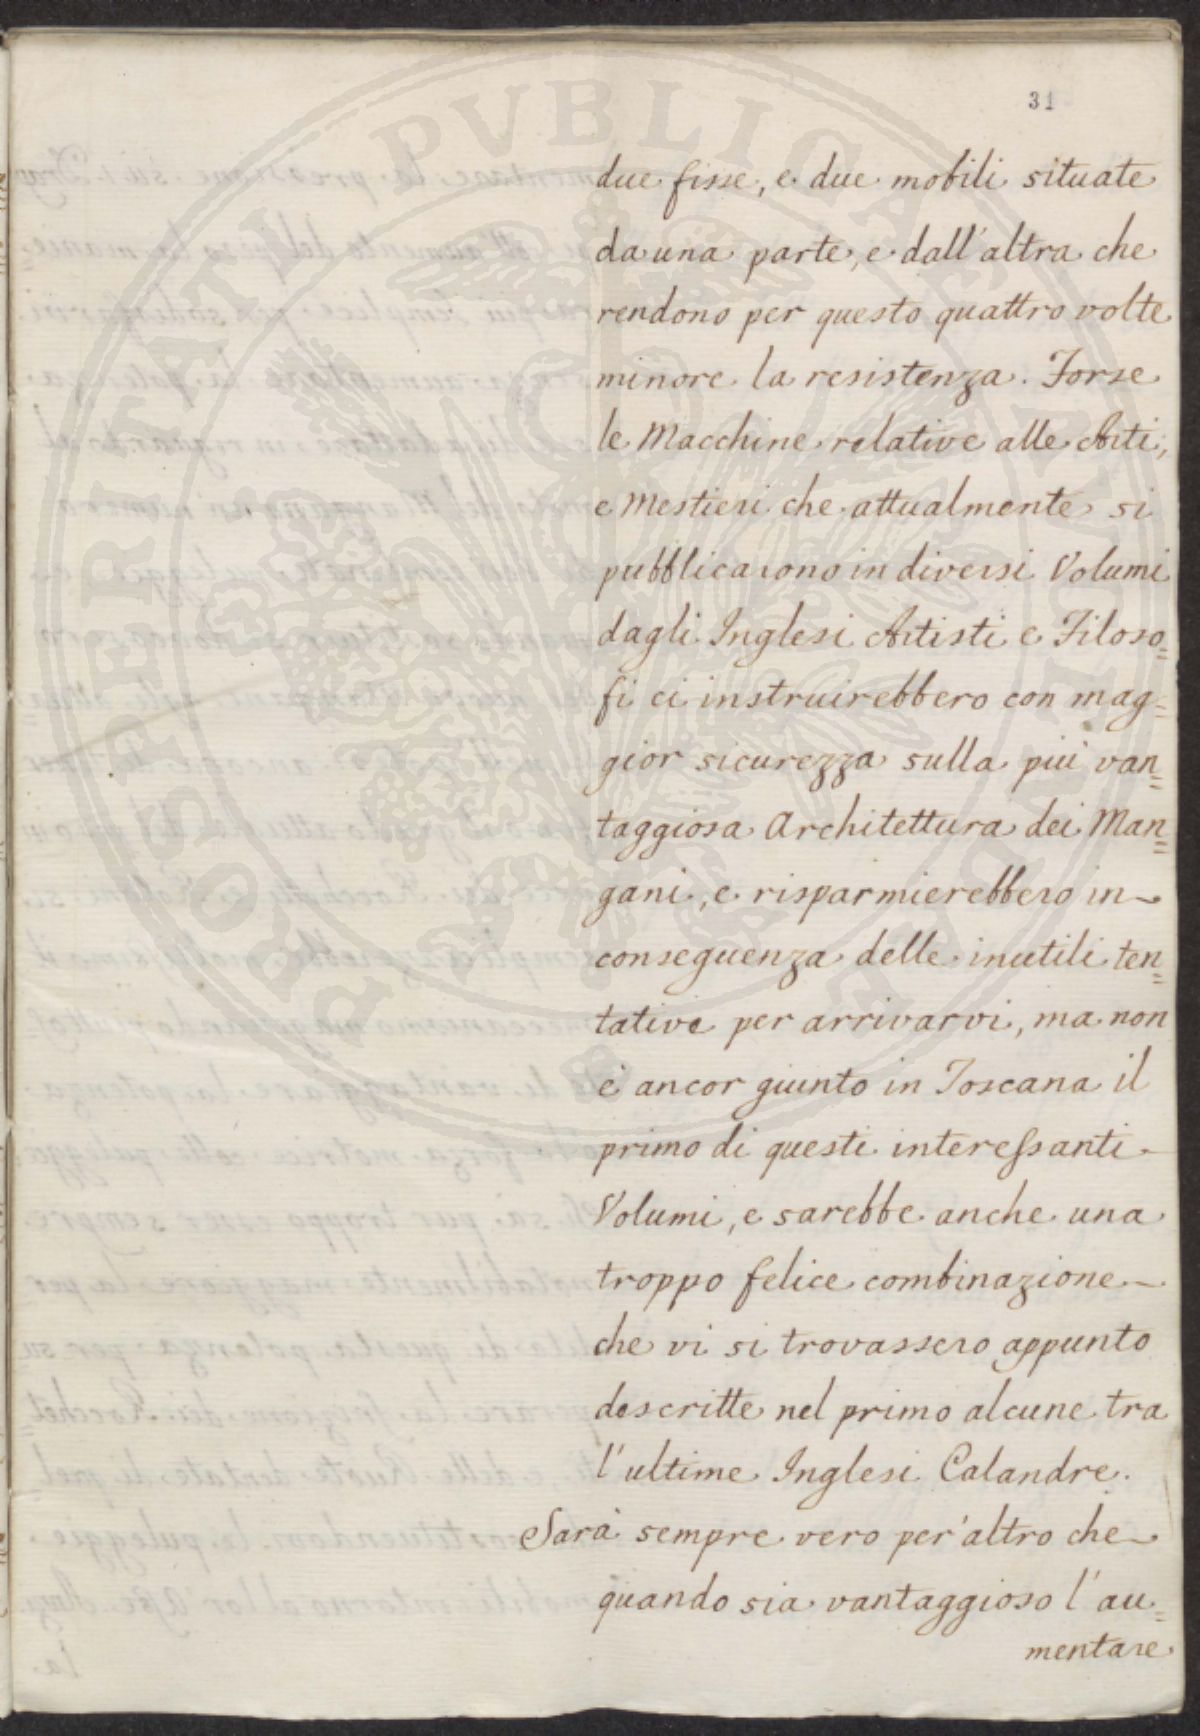 PROSPERITATI PVBLICAE AVGENDAE
31
due fisse, e due mobili situate
da una parte, e dall'altra che
rendono per questo quattro volte
minore la resistenza. Forse
le Macchine relative alle Arti,
e Mestieri che attualmente si
pubblicarono in diversi Volumi
dagli Inglesi Artisti e Filoso=
fi ci instruirebbero con mag=
gior sicurezza sulla più van=
taggiosa Architettura dei Man=
gani, e risparmierebbero in
conseguenza delle inutili ten=
tative per arrivarvi, ma non
è ancor giunto in Toscana il
primo di questi interessanti
Volumi, e sarebbe anche una
troppo felice combinazione
che vi si trovassero appunto
descritte nel primo alcune tra
l'ultime Inglesi Calandre.
Sarà sempre vero per'altro che
quando sia vantaggioso l'au=
mentare